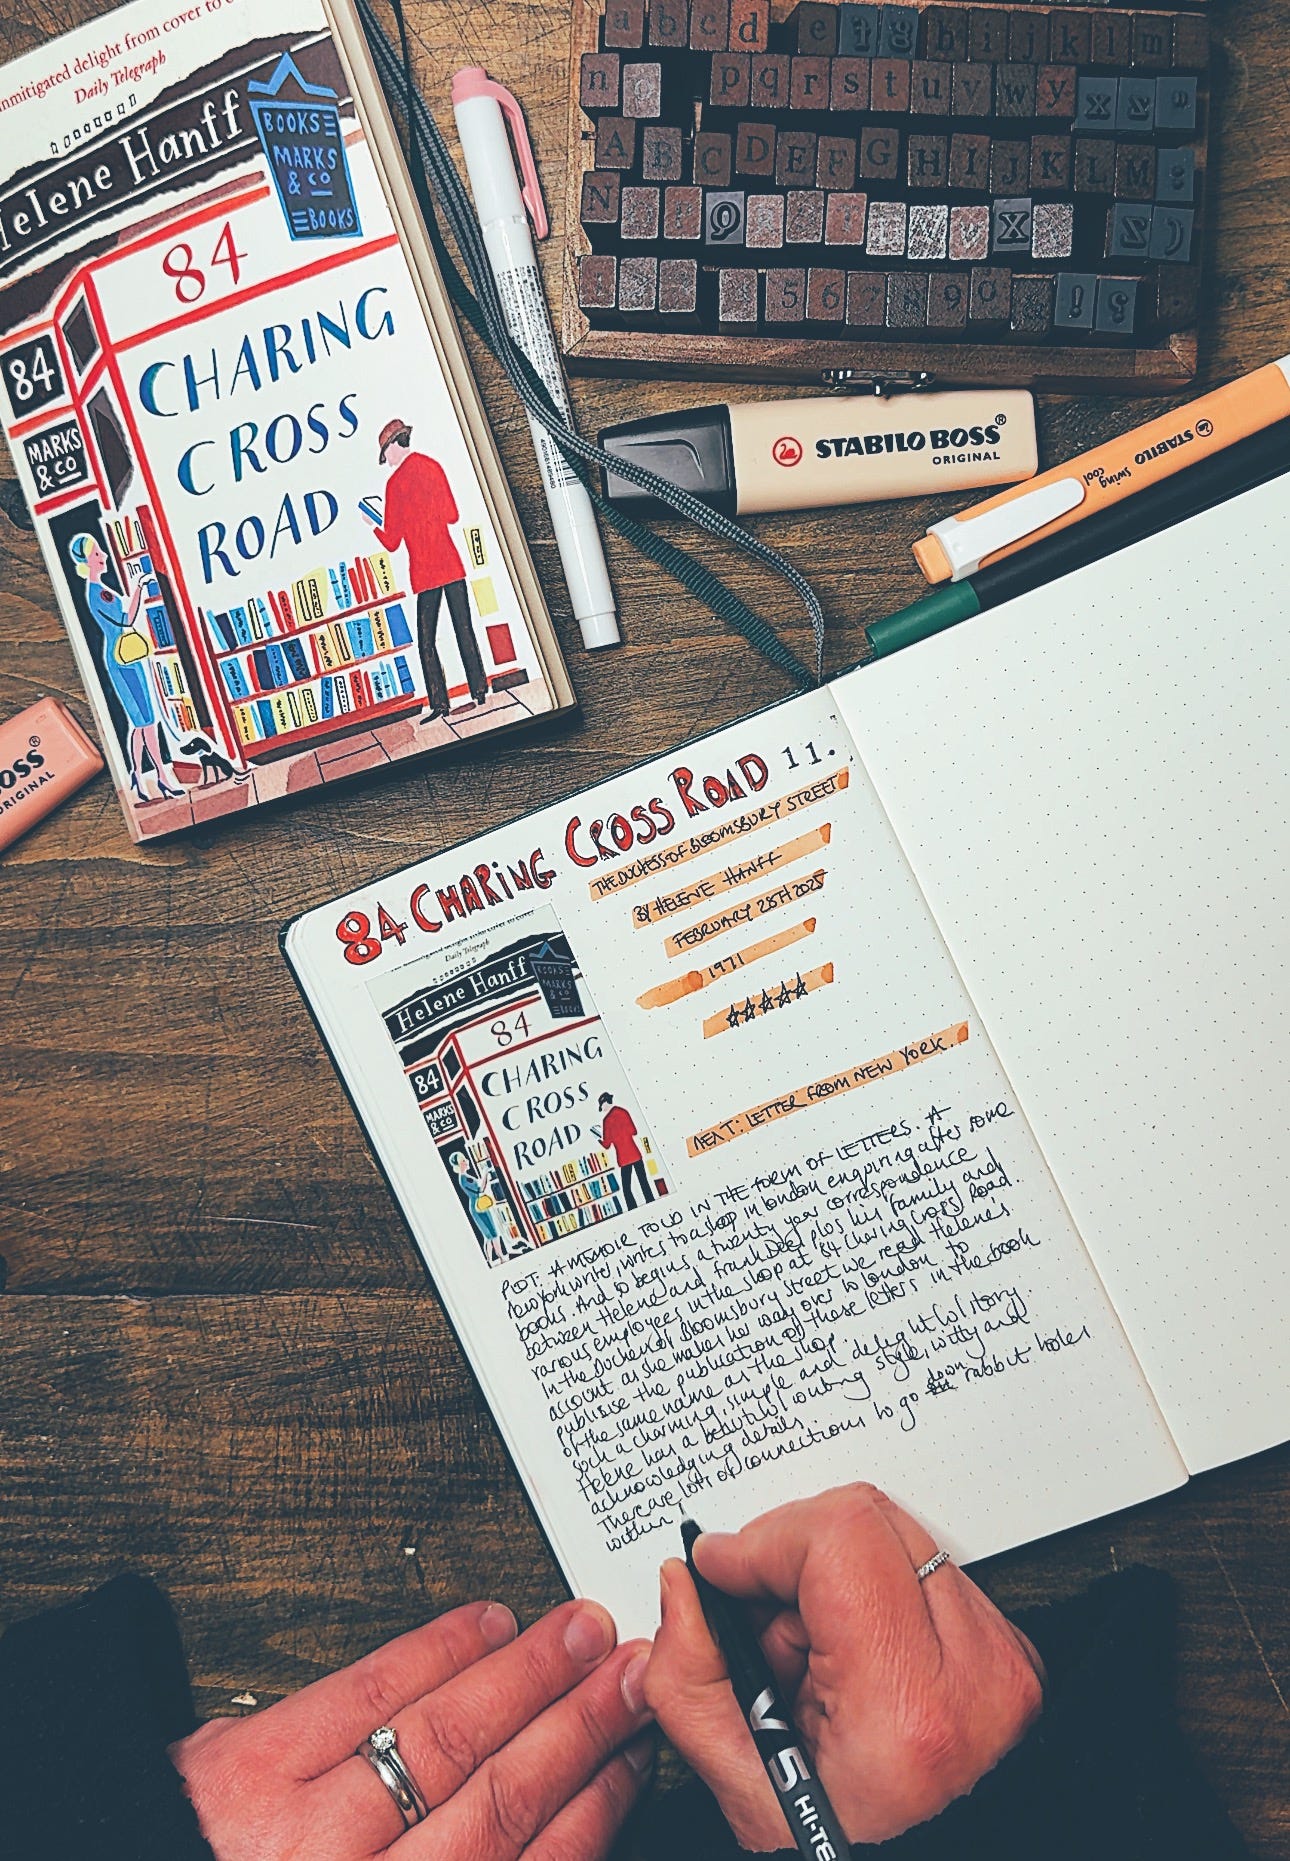 unmitigated delight from cover to
Daily Telegraph
Helene Hanff
BOOKS
MARKS
& CO
BOOKS
84
CHARING
CROSS
ROAD
84
MARKS
& CO
OSS®
ORIGINAL
a b c d e f g h i j k l m
n o p q r s t u v w y x z
A B C D E F G H I J K L M
N Q X Z
5 6 7 8 9 0 ! ?
STABILO BOSS®
ORIGINAL
STABILO®
swing
cool
84 CHARING CROSS ROAD 11.
THE DUCHESS OF BLOOMSBURY STREET
BY HELENE HANFF
FEBRUARY 28TH 2025
1971
☆☆☆☆☆
NEXT: LETTER FROM NEW YORK.
Daily Telegraph
Helene Hanff
BOOKS
MARKS
& CO
BOOKS
84
CHARING
CROSS
ROAD
84
MARKS
& CO
PLOT: A MEMOIR TOLD IN THE FORM OF LETTERS. A
New York writer, writes to a shop in London enquiring after some
books. And so begins a twenty year correspondence
between Helene and Frank Doel plus his family and
various employees in the shop at 84 Charing Cross Road.
In the Duchess of Bloomsbury Street we read Helene's
account as she makes her way over to London to
publisise the publication of these letters in the book
of the same name as the shop.
Such a charming, simple and delightful story.
Helene has a beautiful writing style, witty and
acknowledging details.
There are lots of connections to go down rabbit holes
within
V5 HI-TE